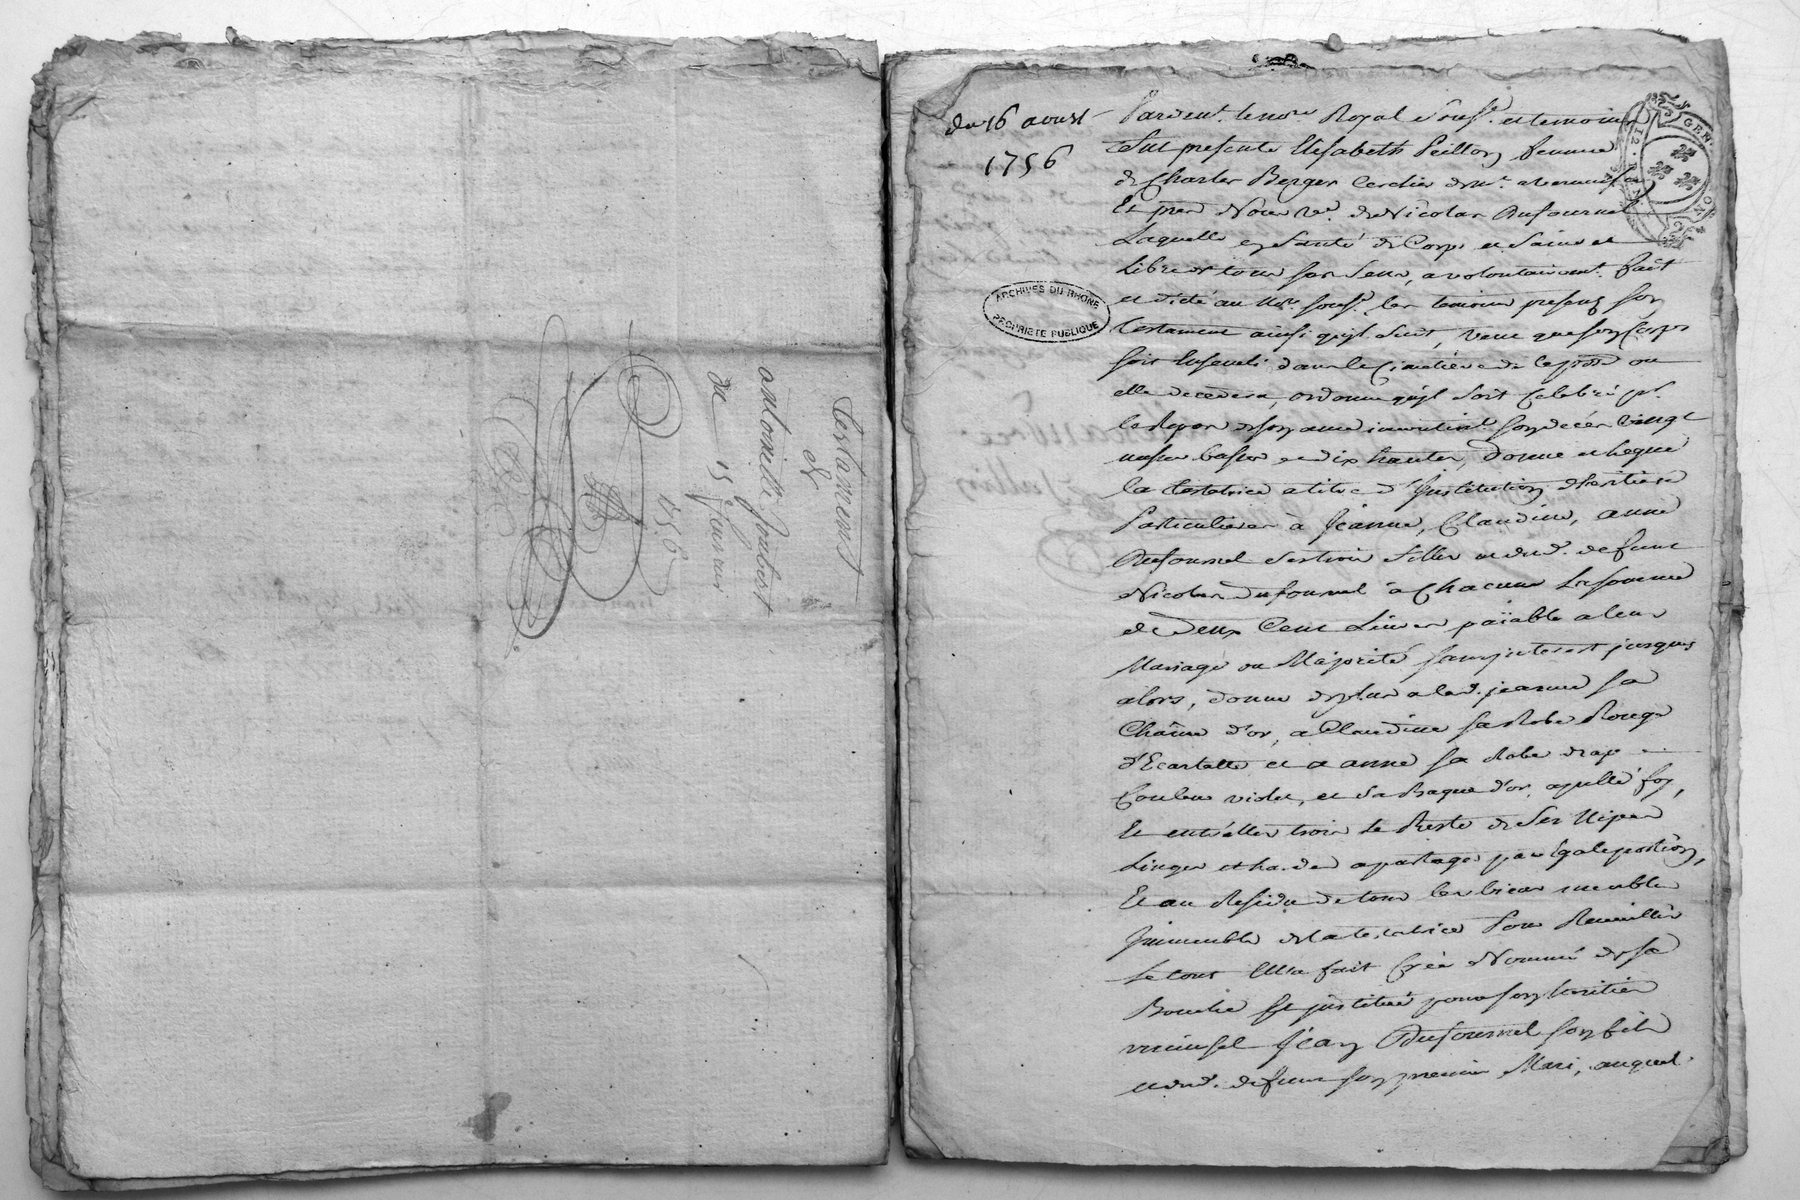 Testament
de
antoinette Joubert
du 15 fevrier
1756
du 16 aoust
1756
ARCHIVES DU RHONE
PROPRIETE PUBLIQUE
GEN
LYON
Pardevt. le nore Royal sousé. et temoins
fut presente Elisabeth Peillon femme
de Charles Berger Cerclier demt. a
Et pre Noces ve. de Nicolas Dufournel
Laquelle en santé de Corps et saine et
Libre de tous ses sens, a volontairemt. fait
et dicté au nore sousé. les temoins presens son
testament ainsi qu'il suit, veut que son Corps
soit Enseveli dans le Cimetiere de la psse ou
elle decedera, ordonne qu'il soit Celebré pr.
le Repos de son ame incontint son decés vingt
messes basses et dix hautes, donne et legue
la testatrice a titre d'Institution d'heritiere
Particulieres à Jeanne, Claudine, anne
Dufournel ses trois filles et dud. defunt
Nicolas Dufournel à Chacune la somme
de Deux Cent Livres païable a leur
Mariage ou Majorité sans interest jusques
alors, donne de plus a lad. jeanne sa
Chaîne d'or, a Claudine sa Robe Rouge
d'Ecarlatte et a anne sa Robe drap
Couleur violet, et sa Bague d'or, apellé foy,
Et entr'elles trois le Reste de ses Nipes
Linges et hardes a partager par Egale portion,
Et au Residu de tous les biens meubles
Immeubles de la testatrice Pour Recueillir
le tout Elle a fait Créé et Nommé de sa
Bouche et institué pour son heritier
universel Jean Dufournel son fils
et dud. defunt son premier Mari, auquel